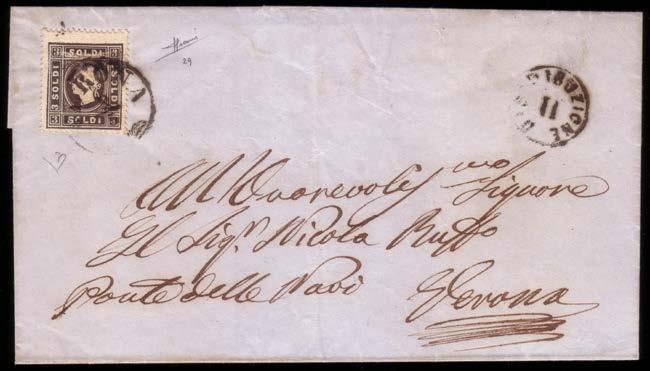 SOLDI
3 SOLDI
3 SOLDI
SOLDI
29
DISTRIBUZIONE
11
All' Onorevolis.mo Signore
Il Sig.r Nicola Ruffo
Ponte delle Navi Verona